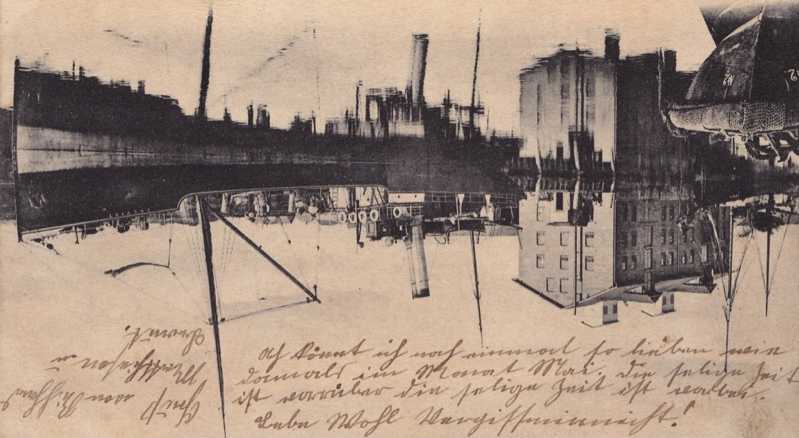 Ach könnt ich noch einmal so lieben wie
damals im Monat Mai. Die selige Zeit
ist vorrüber die selige Zeit ist vorbei.
Lebe Wohl Vergissmeinnicht!
Gruß von